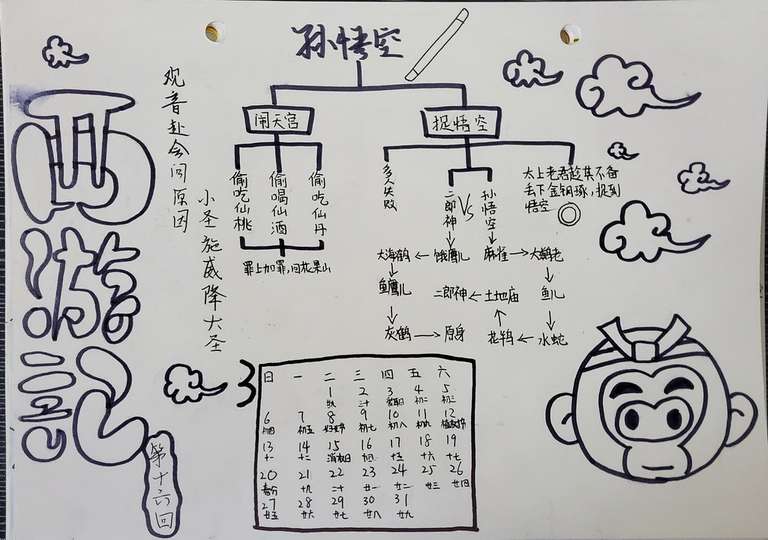 孙悟空
西游记
第十六回
观音赴会问原因
小圣施威降大圣
闹天宫
偷吃仙桃
偷喝仙酒
偷吃仙丹
罪上加罪,回花果山
捉悟空
多久失败
二郎神
VS
孙悟空
太上老君趁其不备
丢下金钢琢,捉到
悟空
大海鹤 ← 饿鹰儿 麻雀 → 大鹚老
鱼鹰儿 二郎神 ← 土地庙 鱼儿
灰鹤 → 原身 花鸨 ← 水蛇
3
日 一 二 三 四 五 六
1 2 3 4 5
三十 爱耳日 初二 初三
6 7 8 9 10 11 12
初四 初五 妇女节 初七 初八 初九 植树节
13 14 15 16 17 18 19
十一 十二 消权日 十四 十五 十六 十七
20 21 22 23 24 25 26
春分 十九 二十 廿一 廿二 廿三 廿四
27 28 29 30 31
廿五 廿六 廿七 廿八 廿九